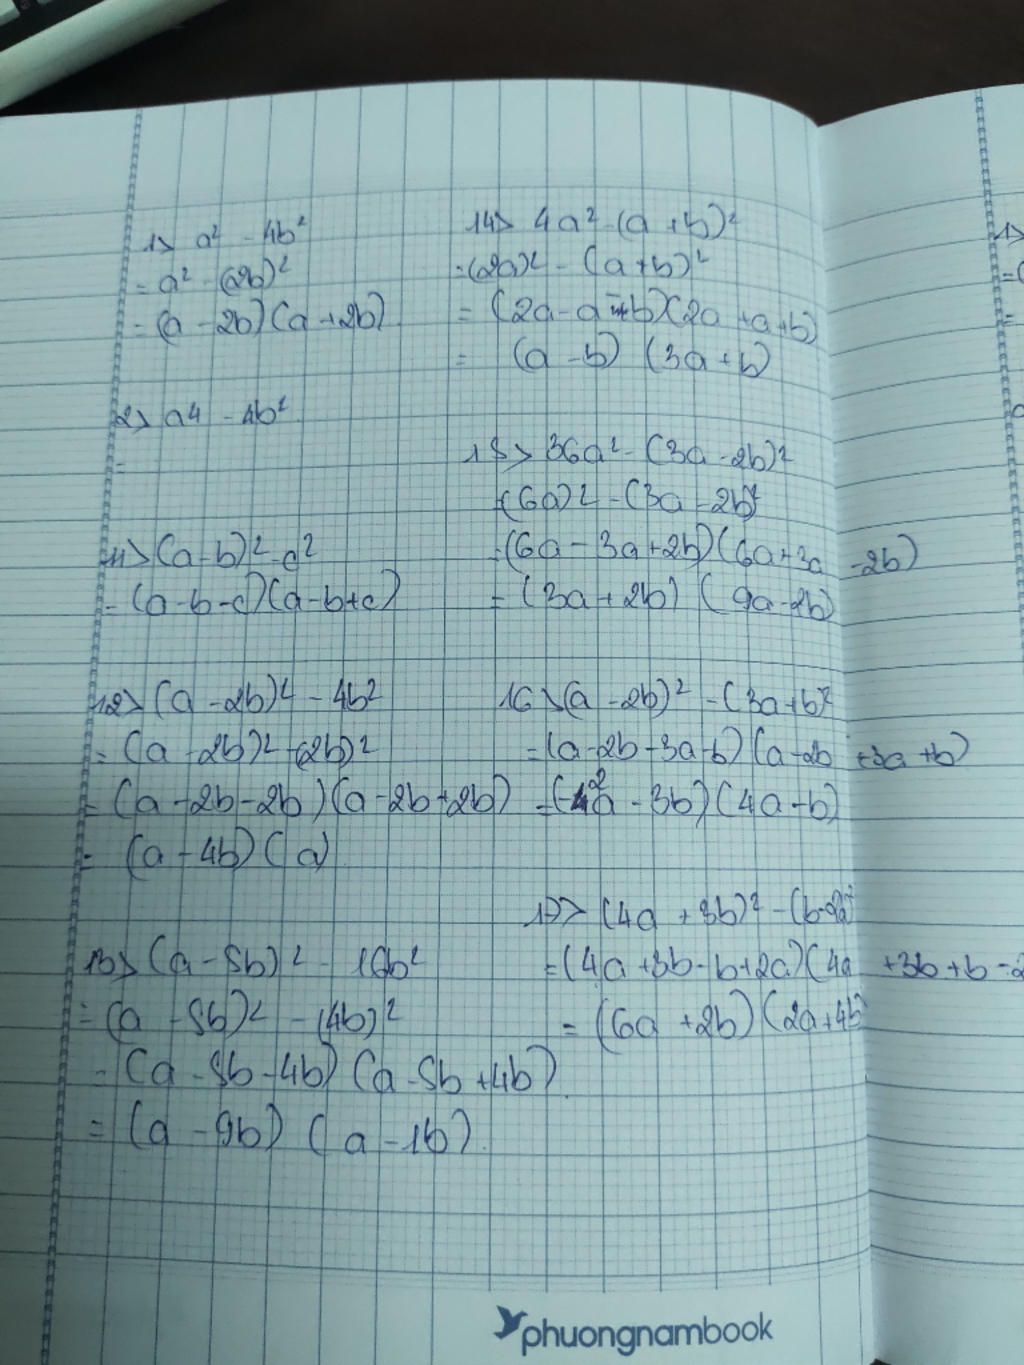 1> a² - 4b²
= a² - (2b)²
= (a - 2b)(a + 2b)
2> a4 - 4b²
=
11> (a-b)² - c²
= (a-b-c)(a-b+c)
12> (a - 2b)² - 4b²
= (a - 2b)² - (2b)²
= (a - 2b - 2b)(a - 2b + 2b)
= (a - 4b)(a)
13> (a - 5b)² - 16b²
= (a - 5b)² - (4b)²
= (a - 5b - 4b)(a - 5b + 4b)
= (a - 9b)(a - 1b)
14> 4a² - (a + b)²
= (2a)² - (a+b)²
= (2a - a - b)(2a + a + b)
= (a - b)(3a + b)
15> 36a² - (3a - 2b)²
= (6a)² - (3a - 2b)²
= (6a - 3a + 2b)(6a + 3a - 2b)
= (3a + 2b)(9a - 2b)
16> (a - 2b)² - (3a + b)²
= (a - 2b - 3a - b)(a - 2b + 3a + b)
= (-2a - 3b)(4a - b)
17> (4a + 3b)² - (b - 2a)²
= (4a + 3b - b + 2a)(4a + 3b + b - 2
= (6a + 2b)(2a + 4b)
phuongnambook